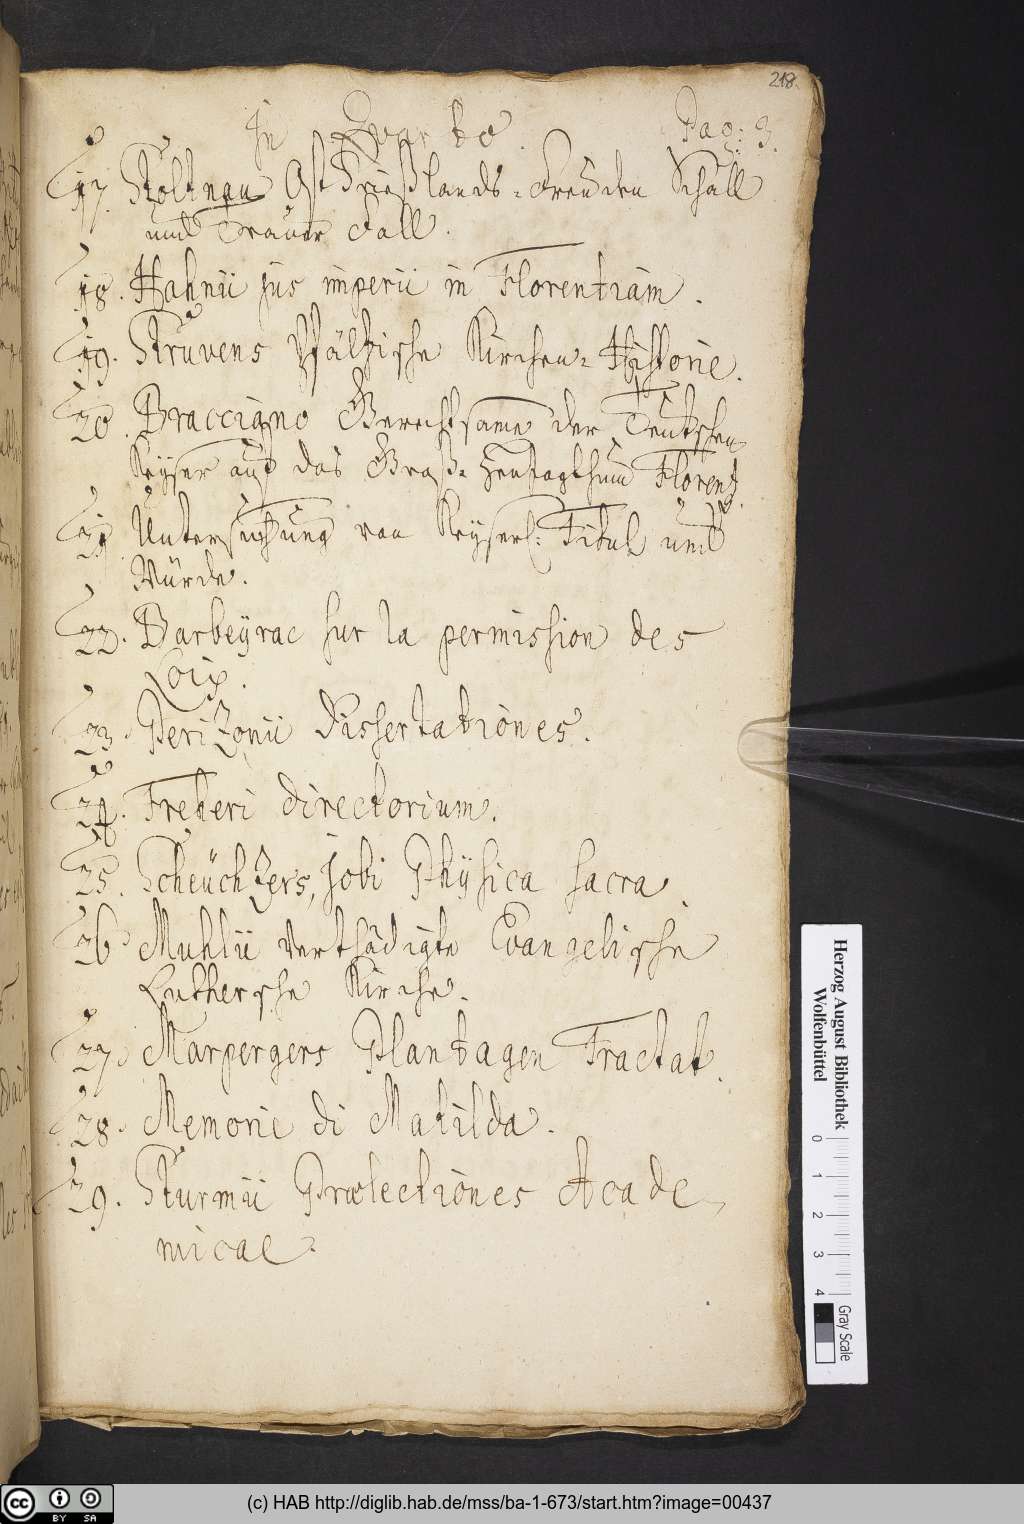 218.
In Quarto. Pag: 3.
17. Stöltnau Ost Frießlands-Freuden Schall
und Trauer Fall.
18. Hahnii jus imperii in Florentiam.
19. Struvens Pfältzische Kirchen-Historie.
20. Bracciano Gerechtsame der Teutschen
Keyser auf das Groß-Hertzogthum Florentz.
21. Untersuchung von Keyserl: Titul und
Würde.
22. Barbeyrac sur la permission des
Loix.
23. Perizonii Dissertationes.
24. Freheri directorium.
25. Scheüchzers, jobi Physica sacra.
26. Muhlii verthädigte Evangelische
Luthersche Kirche.
27. Marpergers Plantagen Tractat.
28. Memorie di Matilda.
29. Sturmii Prælectiones Acade-
micae.
Herzog August Bibliothek
Wolfenbüttel
0 1 2 3 4
Gray Scale
cc BY SA
(c) HAB http://diglib.hab.de/mss/ba-1-673/start.htm?image=00437